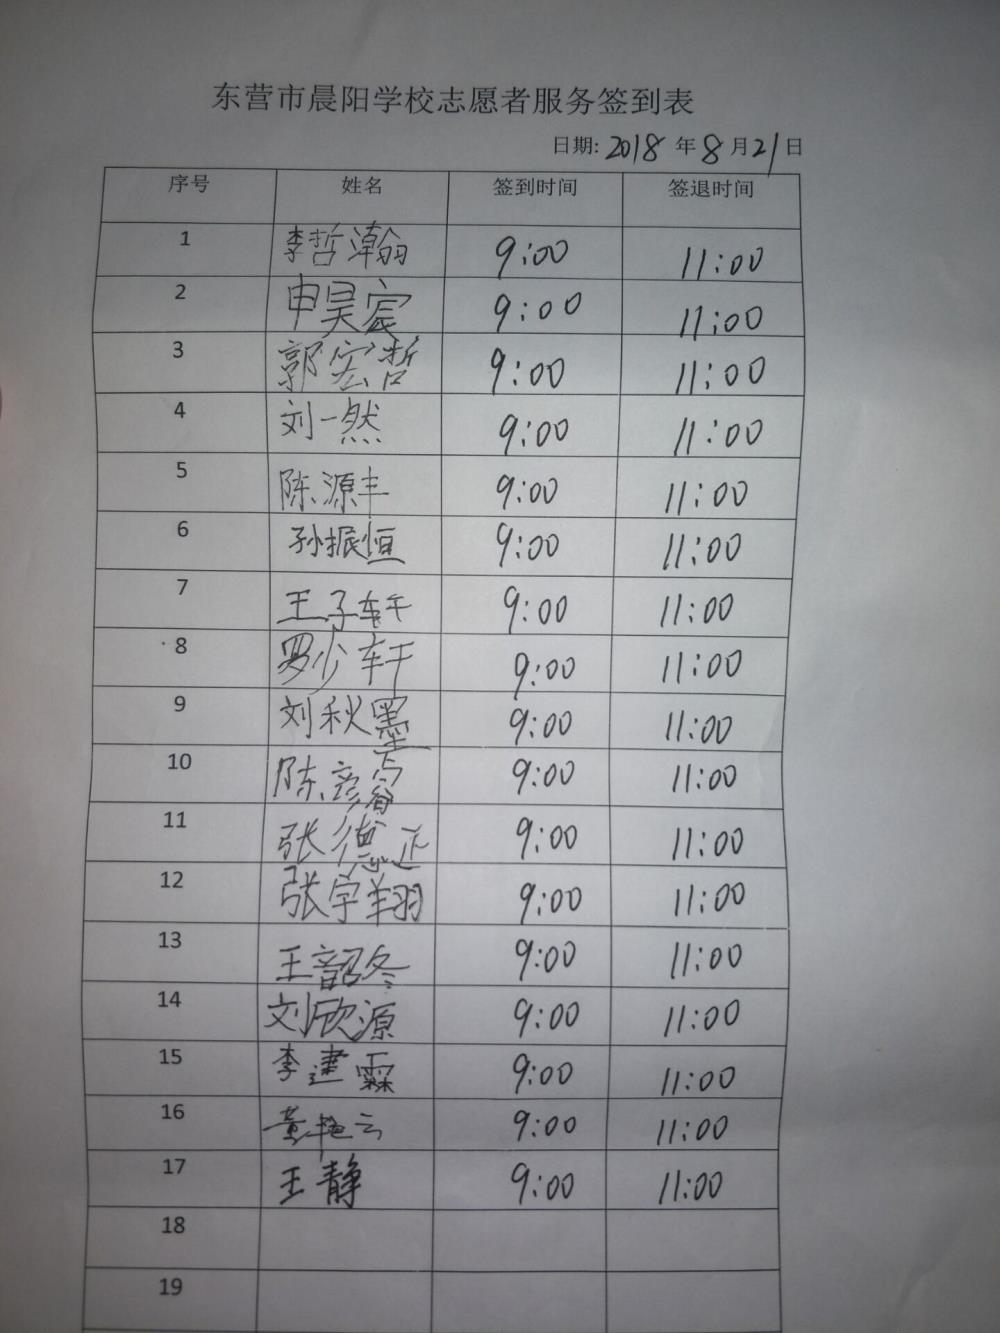 东营市晨阳学校志愿者服务签到表
日期: 2018 年 8 月 21 日
序号 姓名 签到时间 签退时间
1 李哲瀚 9:00 11:00
2 申昊宸 9:00 11:00
3 郭宏哲 9:00 11:00
4 刘一然 9:00 11:00
5 陈源丰 9:00 11:00
6 孙振恒 9:00 11:00
7 王子轩 9:00 11:00
8 罗少轩 9:00 11:00
9 刘秋墨 9:00 11:00
10 陈彦睿 9:00 11:00
11 张德正 9:00 11:00
12 张宇翔 9:00 11:00
13 王韶冬 9:00 11:00
14 刘欣源 9:00 11:00
15 李建霖 9:00 11:00
16 黄艳云 9:00 11:00
17 王静 9:00 11:00
18
19